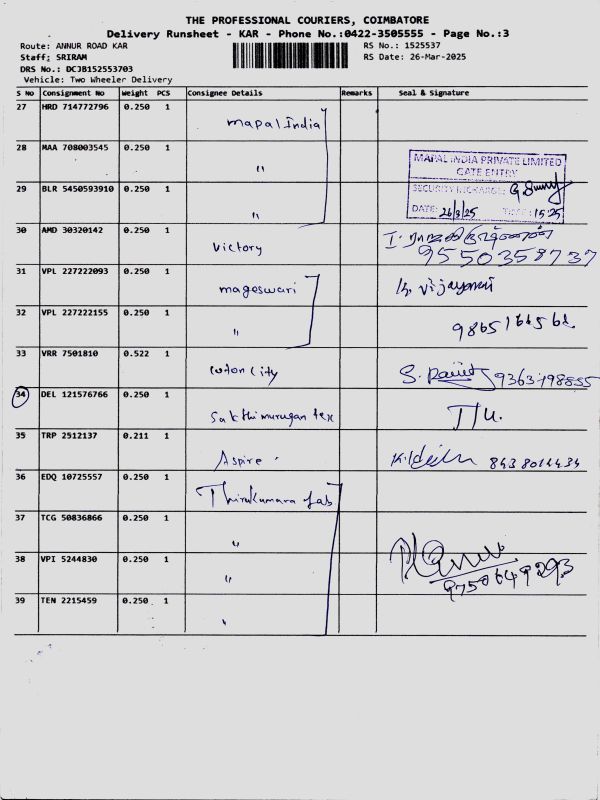 THE PROFESSIONAL COURIERS, COIMBATORE
Delivery Runsheet - KAR - Phone No.:0422-3505555 - Page No.:3
Route: ANNUR ROAD KAR
RS No.: 1525537
Staff: SRIRAM
RS Date: 26-Mar-2025
DRS No.: DCJB152553703
Vehicle: Two Wheeler Delivery
S No Consignment No Weight PCS Consignee Details Remarks Seal & Signature
27 HRD 714772796 0.250 1 mapal India
28 MAA 708003545 0.250 1 "
MAPAL INDIA PRIVATE LIMITED
GATE ENTRY
29 BLR 5450593910 0.250 1 "
SECURITY INCHARGE:
DATE: 26/3/25 TIME: 15:25
30 AMD 30320142 0.250 1 Victory
9550358737
31 VPL 227222093 0.250 1 mageswari
32 VPL 227222155 0.250 1 "
33 VRR 7501810 0.522 1 Coton City
34 DEL 121576766 0.250 1 Sakthimurugan tex
35 TRP 2512137 0.211 1 Aspire
36 EDQ 10725557 0.250 1 Thirukumara fab
37 TCG 50836866 0.250 1 "
38 VPI 5244830 0.250 1 "
9750649293
39 TEN 2215459 0.250 1 "